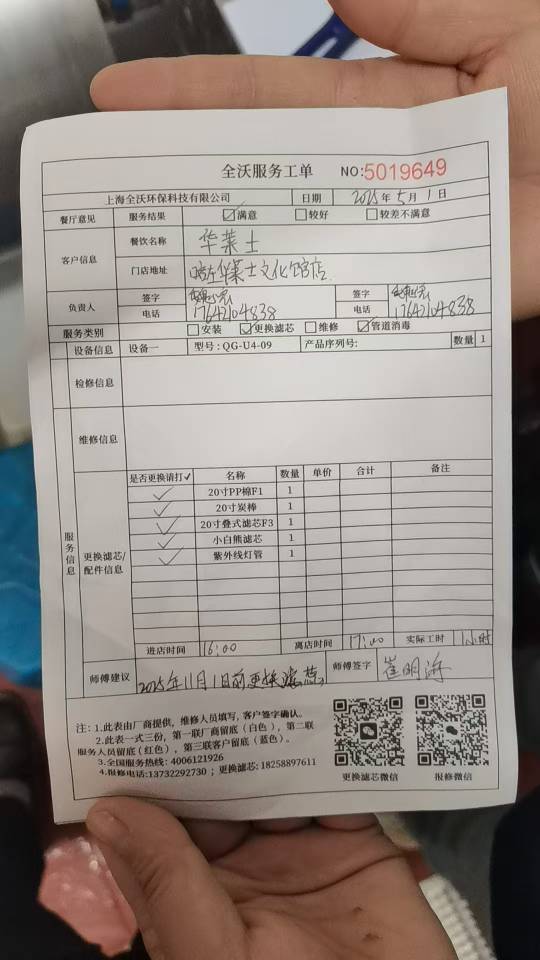 全沃服务工单 NO:5019649
上海全沃环保科技有限公司 日期 2025年5月1日
餐厅意见 服务结果 ☑满意 □较好 □较差不满意
客户信息 餐饮名称 华莱士
门店地址 哈左华莱士文化馆店
负责人 签字 签字
电话 17642104838 电话 17642104838
服务类别 □安装 ☑更换滤芯 □维修 ☑管道消毒
设备信息 设备一 型号:QG-U4-09 产品序列号: 数量 1
检修信息
维修信息
服务信息
更换滤芯/配件信息
是否更换请打✓ 名称 数量 单价 合计 备注
✓ 20寸PP棉F1 1
✓ 20寸炭棒 1
✓ 20寸叠式滤芯F3 1
✓ 小白熊滤芯 1
✓ 紫外线灯管 1
进店时间 16:00 离店时间 17:00 实际工时 1小时
师傅建议 2025年11月1日前更换滤芯 师傅签字 崔明海
注:1.此表由厂商提供,维修人员填写,客户签字确认。
2.此表一式三份,第一联厂商留底(白色),第二联
服务人员留底(红色),第三联客户留底(蓝色)。
3.全国服务热线:4006121926
4.报修电话:13732292730;更换滤芯:18258897611
更换滤芯微信 报修微信